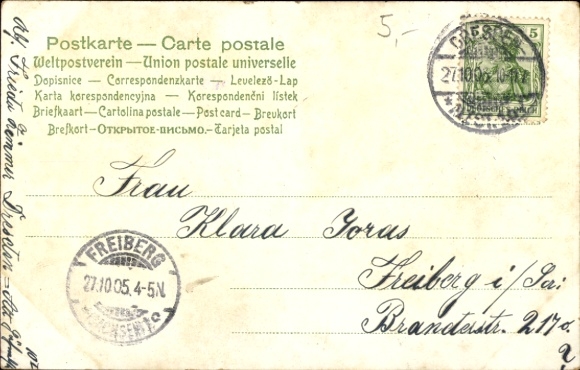 5,-
Postkarte — Carte postale
Weltpostverein — Union postale universelle
Dopisnice — Correspondenzkarte — Levelező-Lap
Karta korespondencyjna — Korespondenční lístek
Briefkaart — Cartolina postale — Post card — Brevkort
Brefkort — ОТКРЫТОЕ ПИСЬМО. — Tarjeta postal
5
27.10.05. 10-11V.
Frau
Klara Joras
Freiberg i/Sa.
Branderstr. 217
FREIBERG
27.10.05. 4-5N.
(SACHSEN)
Abs. Frieda Dresden